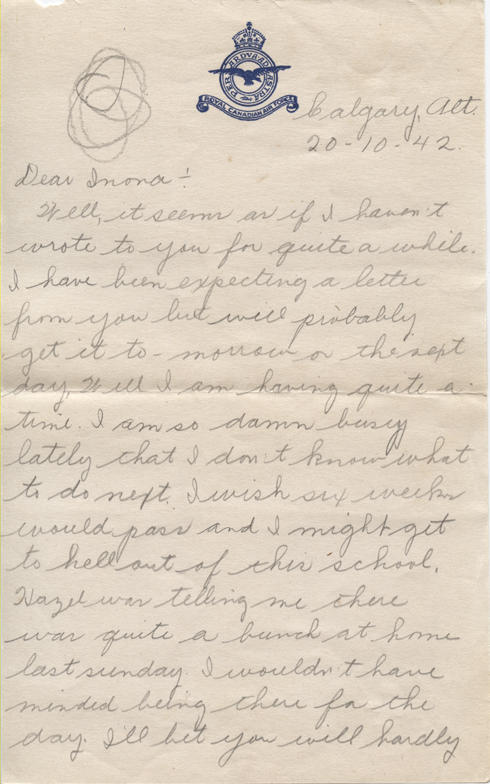 PER ARDVA AD ASTRA
ROYAL CANADIAN AIR FORCE
Calgary, Alt.
20-10-42.
Dear Inona:-
Well, it seems as if I haven't
wrote to you for quite a while.
I have been expecting a letter
from you but will probably
get it to-morrow or the next
day. Well I am having quite a
time. I am so damn busy
lately that I don't know what
to do next. I wish six weeks
would pass and I might get
to hell out of this school.
Hazel was telling me there
was quite a bunch at home
last sunday. I wouldn't have
minded being there for the
day. I'll bet you will hardly